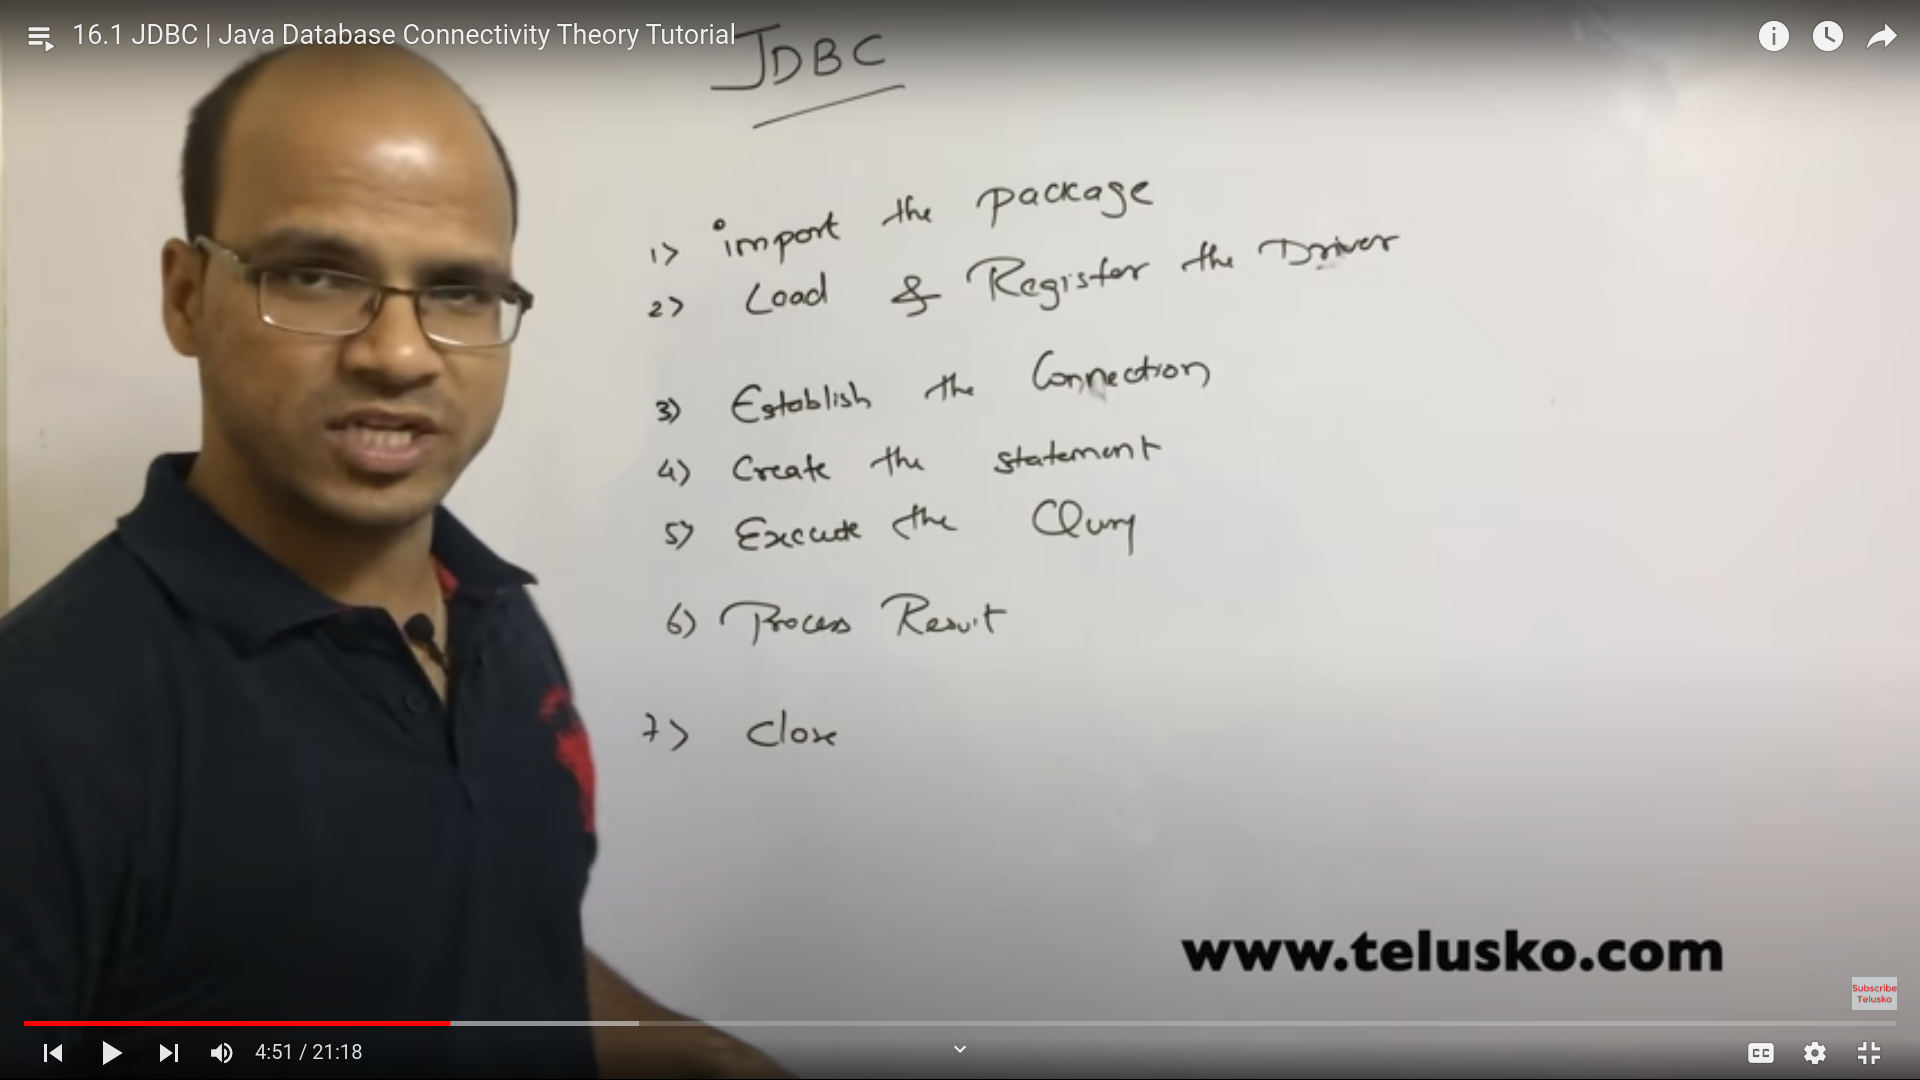 16.1 JDBC | Java Database Connectivity Theory Tutorial
JDBC
1> import the package
2> Load & Register the Driver
3) Establish the Connection
4) Create the statement
5) Execute the Query
6) Process Result
7> Close
www.telusko.com
Subscribe
Telusko
4:51 / 21:18
CC